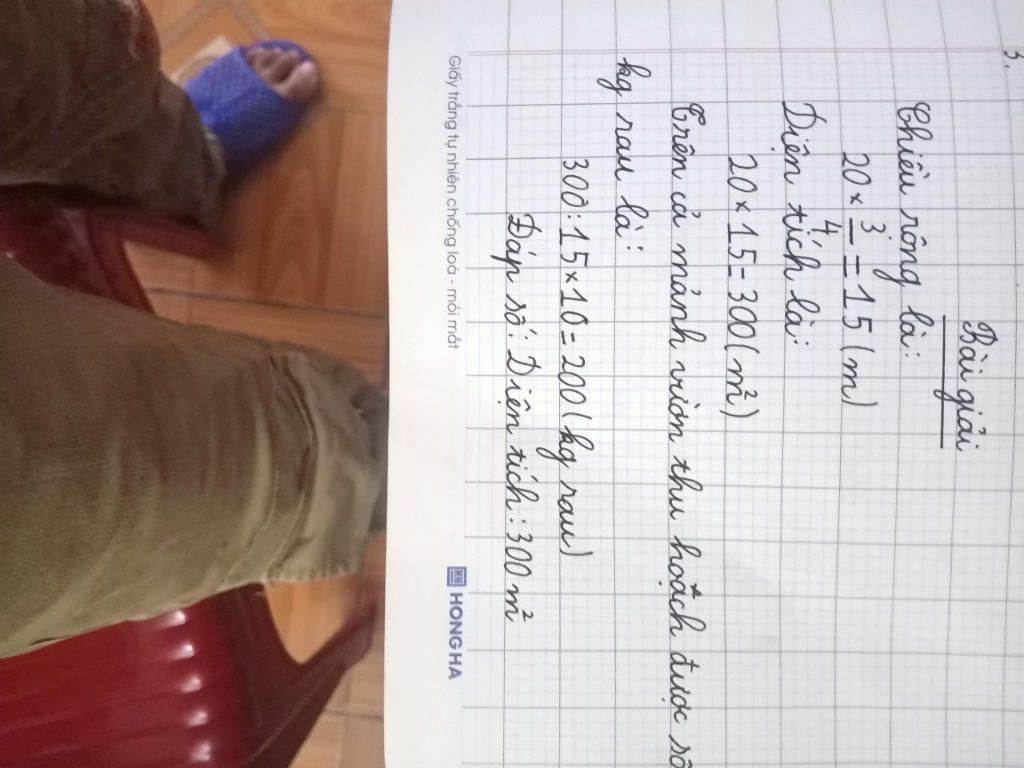 3.
Bài giải
Chiều rộng là:
20 × 3/4 = 15 (m)
Diện tích là:
20 × 15 = 300 (m²)
Trên cả mảnh vườn thu hoạch được số
kg rau là:
300 : 15 × 10 = 200 (kg rau)
Đáp số: Diện tích: 300 m²
Giấy trắng tự nhiên chống loá - mỏi mắt
HONG HA